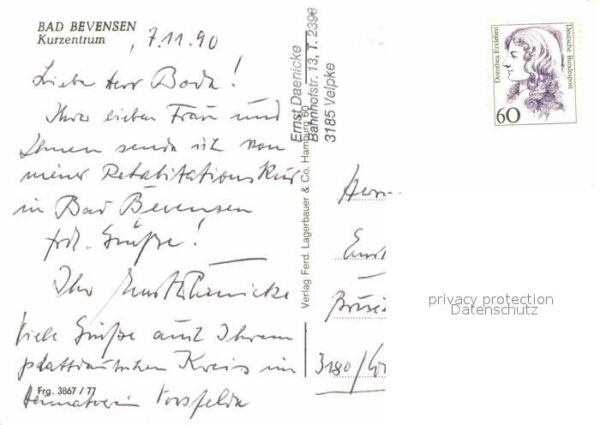 BAD BEVENSEN
Kurzentrum
, 7.11.90
Liebe Herr Bode!
Ihrer lieben Frau und
Ihnen sende ich von
meiner RehabilitationsKur
in Bad Bevensen
frdl. Grüße!
Ihr Ernst Daenicke
Viele Grüße auch Ihrem
plattdeutschen Kreis im
Heimatverein Vorsfelde
Frg. 3867 / 77
Verlag Ferd. Lagerbauer & Co. Hamburg 60
Ernst Daenicke
Bahnhofstr. 13, T. 2396
3185 Velpke
Dorothea Erxleben
Deutsche Bundespost
60
Herrn
3180/
privacy protection
Datenschutz